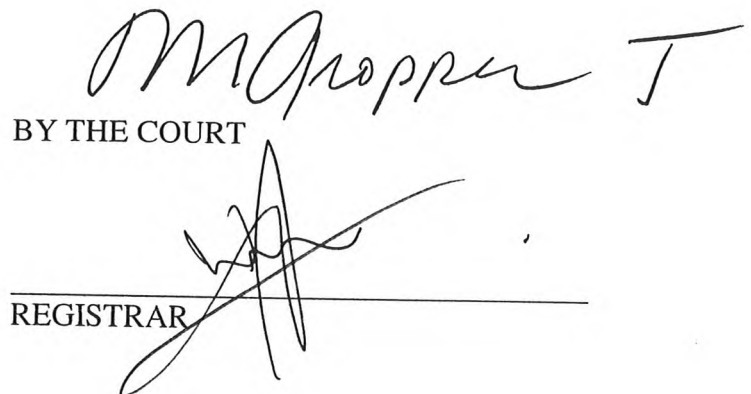 M Gropper J
BY THE COURT
REGISTRAR